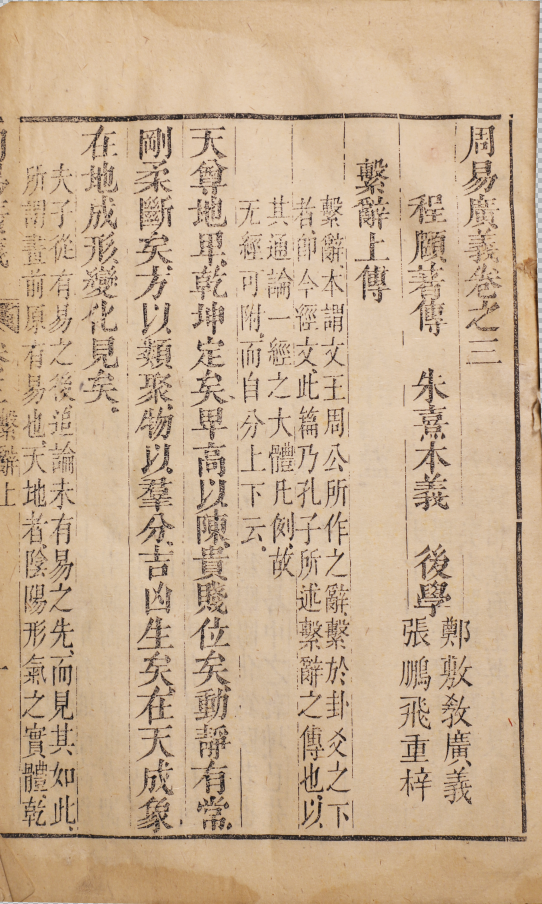 周易廣義卷之三
程頤著傳 朱熹本義 後學
鄭敷敎廣義
張鵬飛重梓
繫辭上傳
繫辭、本謂文王周公所作之辭、繫於卦爻之下
者、卽今經文、此篇乃孔子所述繫辭之傳也、以
其通論一經之大體凡例、故
无經可附、而自分上下云、
天尊地𤰞、乾坤定矣、𤰞高以陳、貴賤位矣、動靜有常、
剛柔斷矣、方以類聚、物以羣分、吉凶生矣、在天成象、
在地成形、變化見矣、
夫子從有易之後、追論未有易之先、而見其如此、
所謂畫前原有易也、天地者、陰陽形氣之實體、乾
繫辭上